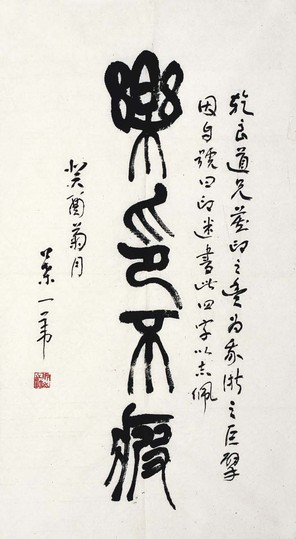 乾良道兄蓄印之為我浙之巨擘
因自號曰印迷書此四字以志佩
樂印不疲
癸酉菊月
葉一葦